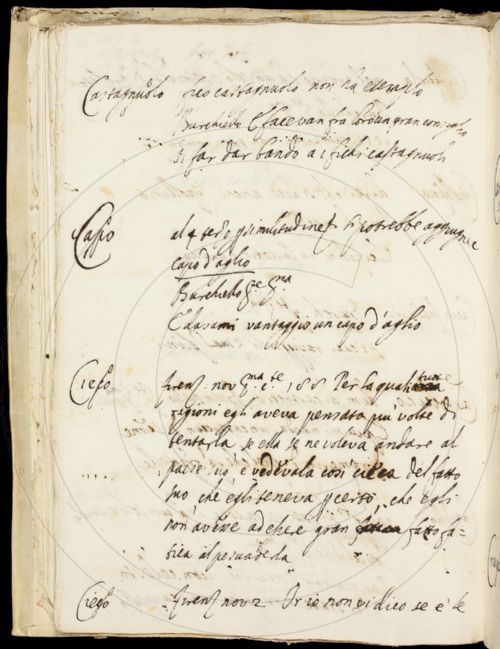 Castagnuolo fico castagnuolo non ha esemplo
Burchiello E facevan fra loro un gran consiglio
Di far dar bando a i fichi castagnuoli
Capo al 4 p similitudine si potrebbe aggiugnere
capo d'aglio
Burchiello
E davami vantaggio un capo d'aglio
Cieco Firenz. nov. p.ma 188 Per la qual
ragioni egli aveva pensato più volte di
tentarla se ella se ne voleva andare al
paese, vedevala così cieca del fatto
suo che egli teneva p certo, che egli
non avesse ad essere gran fatto fa-
tica al persuaderla
Cieco Firenz. nov. 2 Or io non vi dico se è le